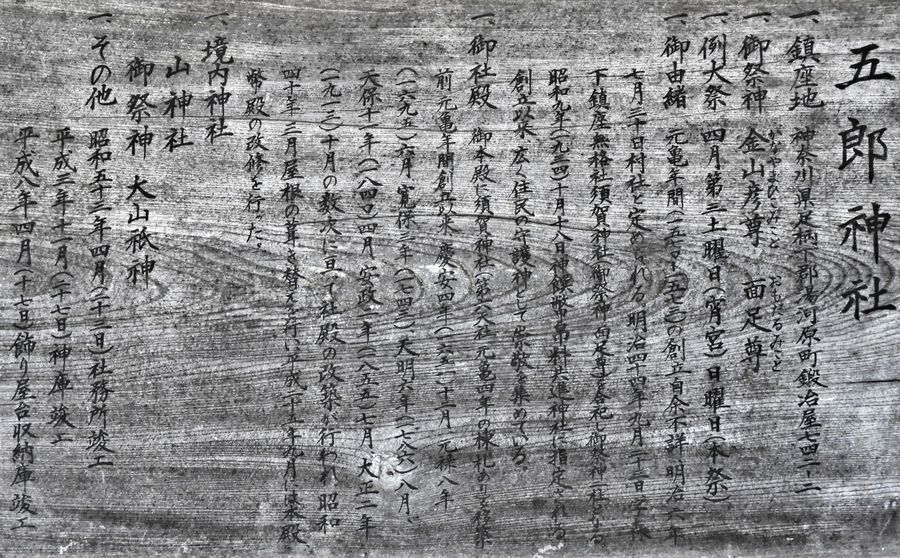 五郎神社
一、鎮座地 神奈川県足柄下郡湯河原町鍛冶屋七四二-二
一、御祭神 金山彦尊 面足尊
かなやまひこのみこと おもだるみこと
一、例大祭 四月第二土曜日(宵宮)日曜日(本祭)
一、御由緒 元亀年間(一五七〇-一五七二)の創立自余不詳明治六年
七月三十日村社と定められる明治四十四年九月二十一日字森
下鎮座無格社須賀神社御祭神面足尊を合祀し御祭神二柱となる
昭和九年(一九三四)十月十六日神饌幣帛料供進神社に指定される
創立以来広く住民の守護神として崇敬を集めている。
一、御社殿 御本殿に須賀神社(第六天社元亀四年の棟札あり)を移築
前元亀年間創立以来慶安四年(一六五一)十一月 元禄八年
(一六九五)六月 寛保三年(一七四三)天明六年(一七八六)八月、
天保十一年(一八四〇)四月 安政二年(一八五五)七月 大正二年
(一九一三)十月の数次に亘って社殿の改築が行われ 昭和
四十年三月屋根の葺き替えを行い、平成二十一年九月に
幣殿の改修を行った。
一、境内神社
山神社
御祭神 大山祇神
一、その他 昭和五十二年四月(二十三日)社務所竣工
平成三年十一月(二十七日)神庫竣工
平成八年四月(十七日)飾り屋台収納庫竣工